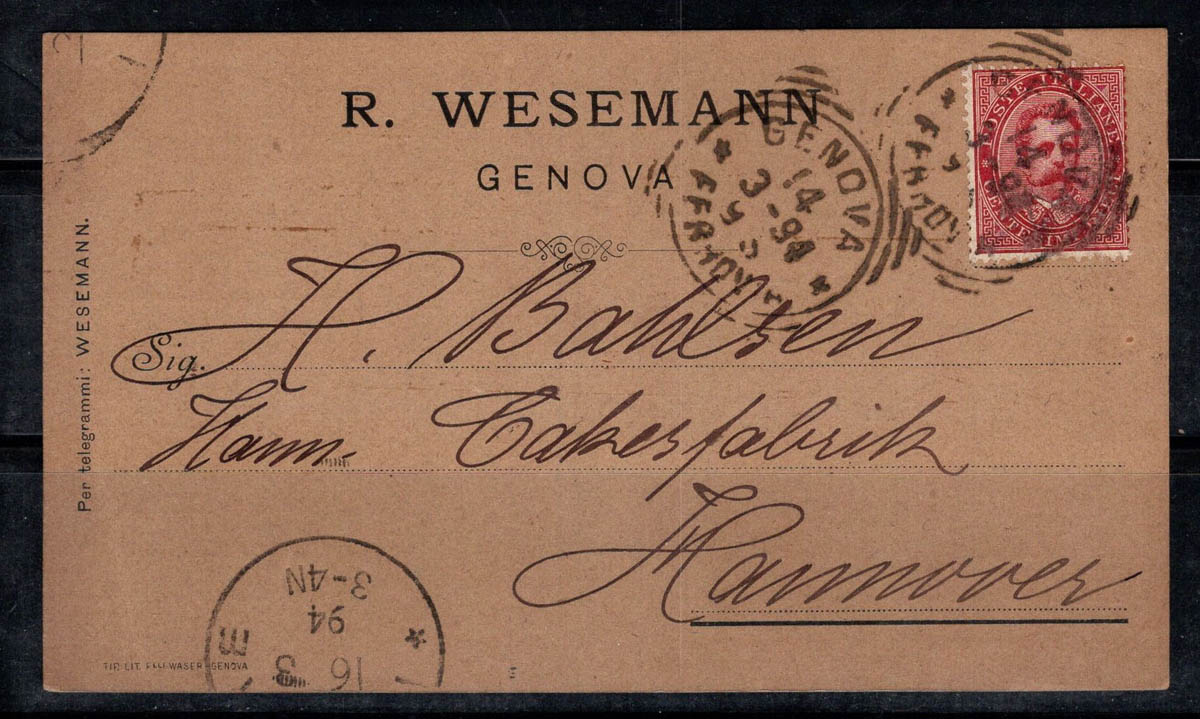 R. WESEMANN
GENOVA
Per telegrammi: WESEMANN.
POSTE ITALIANE
GENOVA
14
3-94
FERROVIA
Sig. H. Bahlsen
Hann. Cakesfabrik
Hannover
16
3
94
3-4N
TIP. LIT. F.LLI WASER-GENOVA